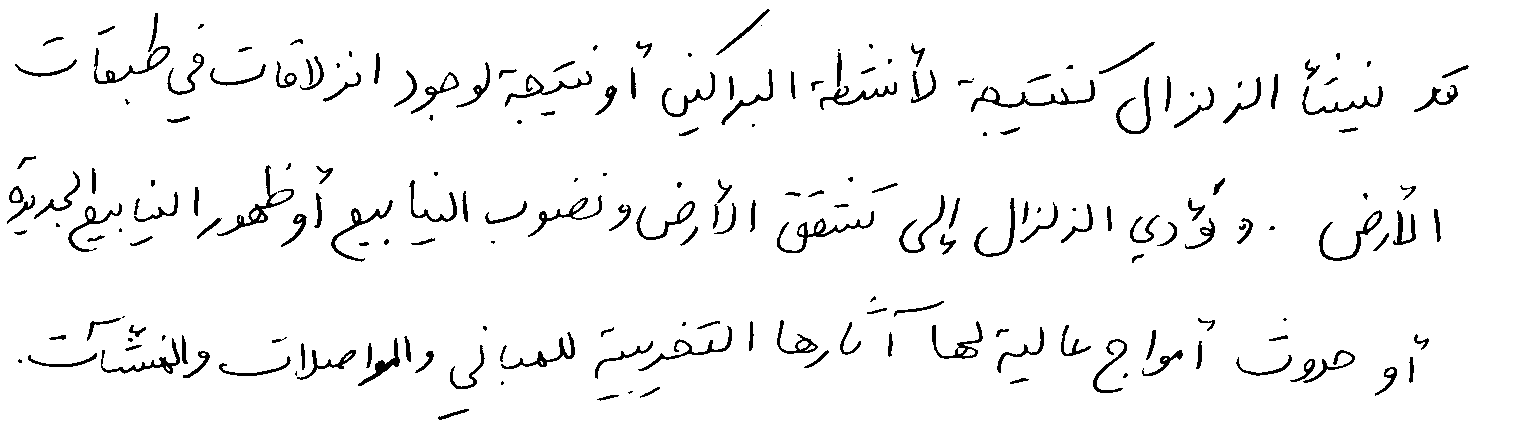 قد ينشأ الزلزال كنتيجة لأنشطة البراكين أو نتيجة لوجود انزلاقات في طبقات
الأرض . و تؤدي الزلزال إلى تشقق الأرض و نضوب الينابيع أو ظهور الينابيع الجديدة
أو حدوث أمواج عالية لها آثارها التخريبية للمباني والمواصلات والمنشآت.